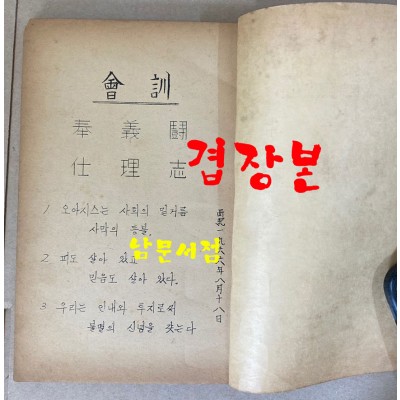 會訓
奉 義 鬪
仕 理 志
겹장본
1 오아시스는 사회의 밑거름
사막의 등불.
남문서점
2 피도 살아 있고
믿음도 살아 있다.
3 우리는 인내와 투지로써
불멸의 신념을 찾는다
西紀一九六六年八月十八日